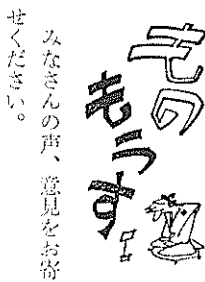 もの
もうす
みなさんの声、意見をお寄
せください。